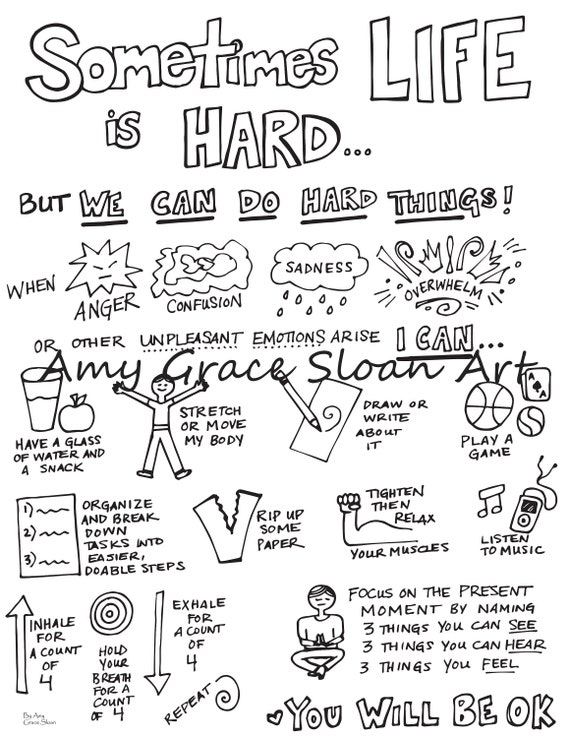 Sometimes LIFE
is HARD...
BUT WE CAN DO HARD THINGS!
WHEN
ANGER
CONFUSION
SADNESS
OVERWHELM
OR OTHER UNPLEASANT EMOTIONS ARISE I CAN...
Amy Grace Sloan Art
HAVE A GLASS
OF WATER AND
A SNACK
STRETCH
OR MOVE
MY BODY
DRAW OR
WRITE
ABOUT
IT
A
A
PLAY A
GAME
1)
2)
3)
ORGANIZE
AND BREAK
DOWN
TASKS INTO
EASIER,
DOABLE STEPS
RIP UP
SOME
PAPER
TIGHTEN
THEN
RELAX
YOUR MUSCLES
LISTEN
TO MUSIC
INHALE
FOR
A COUNT
OF
4
HOLD
YOUR
BREATH
FOR A
COUNT
OF 4
EXHALE
FOR
A COUNT
OF
4
REPEAT
FOCUS ON THE PRESENT
MOMENT BY NAMING
3 THINGS YOU CAN SEE
3 THINGS YOU CAN HEAR
3 THINGS YOU FEEL
YOU WILL BE OK
By Amy
Grace Sloan